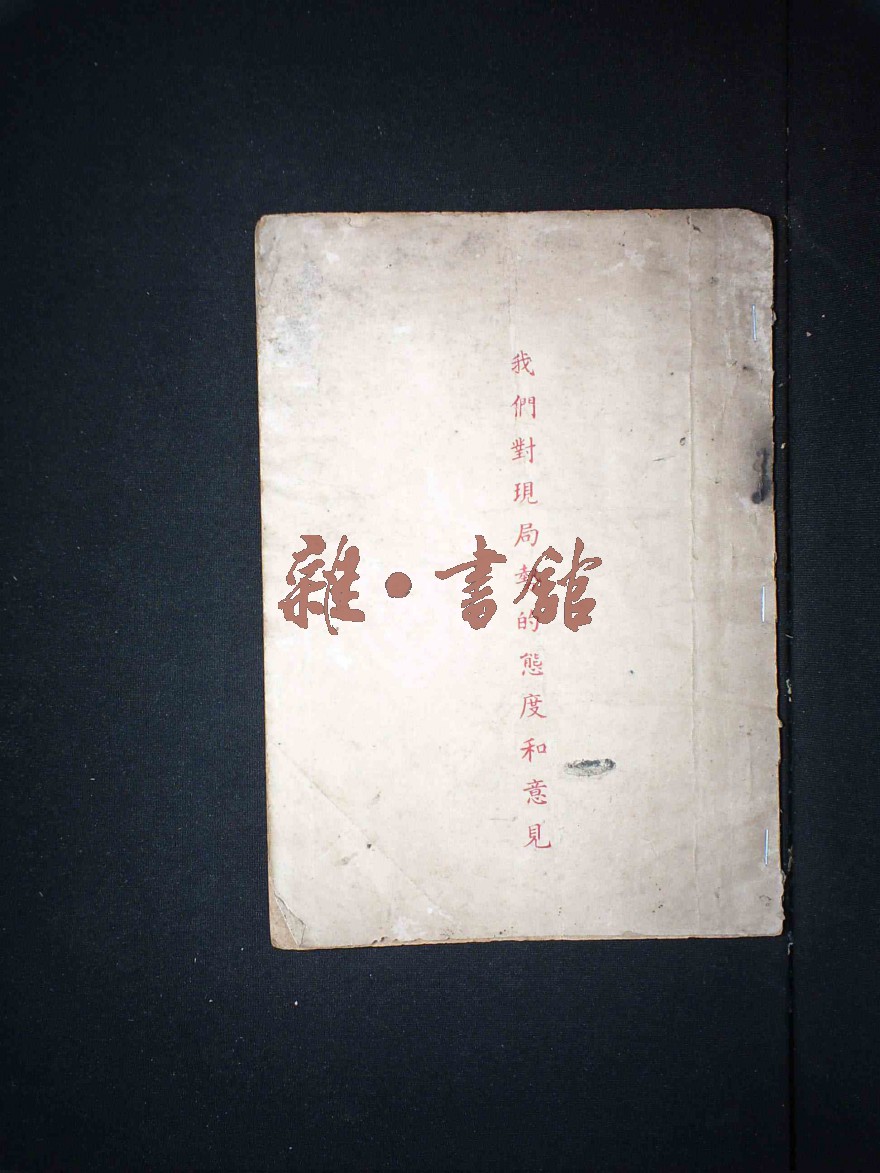 我們對現局勢的態度和意見
雜·書館